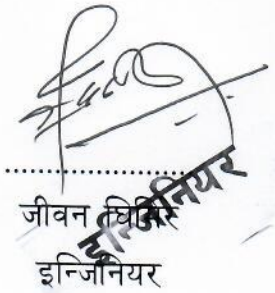 ....................
जीवन घिमिरे
इन्जिनियर
इन्जिनियर